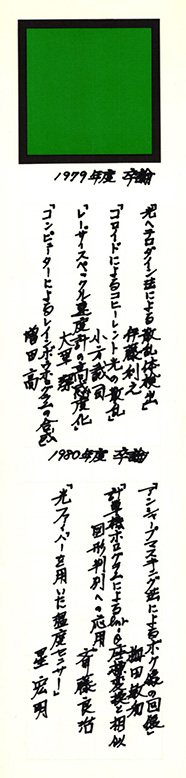 1979年度 卒論
「光ヘテロダイン法による散乱体検出」
伊藤利之
「コロイドによるコヒーレント光の散乱」
小方誠司
「レーザスペックル濃度計の高感度化」
大黒
「コンピューターによるレインボウホログラムの合成」
増田高
1980年度 卒論
「アンシャープマスキング法によるボケ像の回復」
梅田敏和
「計算機ホログラムによる 座標変換と相似
図形判別への応用」
斎藤良治
「光ファイバーを用いた温度センサー」
星宏明